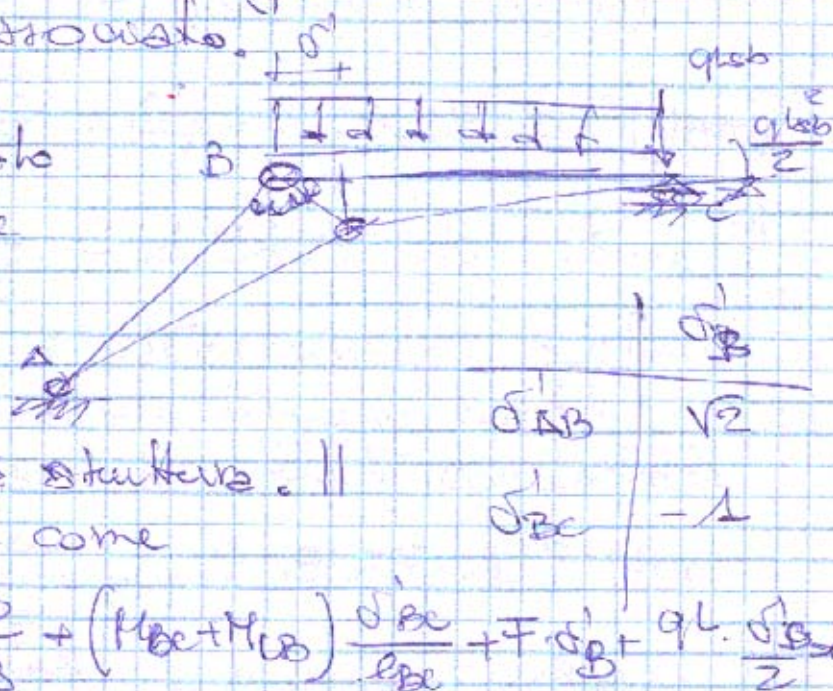 δ'
qLsb
qLsb²/2
B
C
A
δ'B
δ'AB √2
δ'BC -1
struttura. ||
come
+ (MBC+MCB) δ'BC/lBC + F·δ'B + qL·δ'B/2